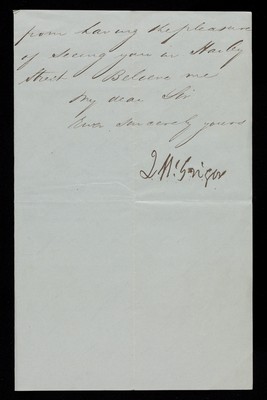 from having the pleasure
of seeing you in Harley
Street Believe me
My dear Sir
Ever Sincerely yours
J McGrigor